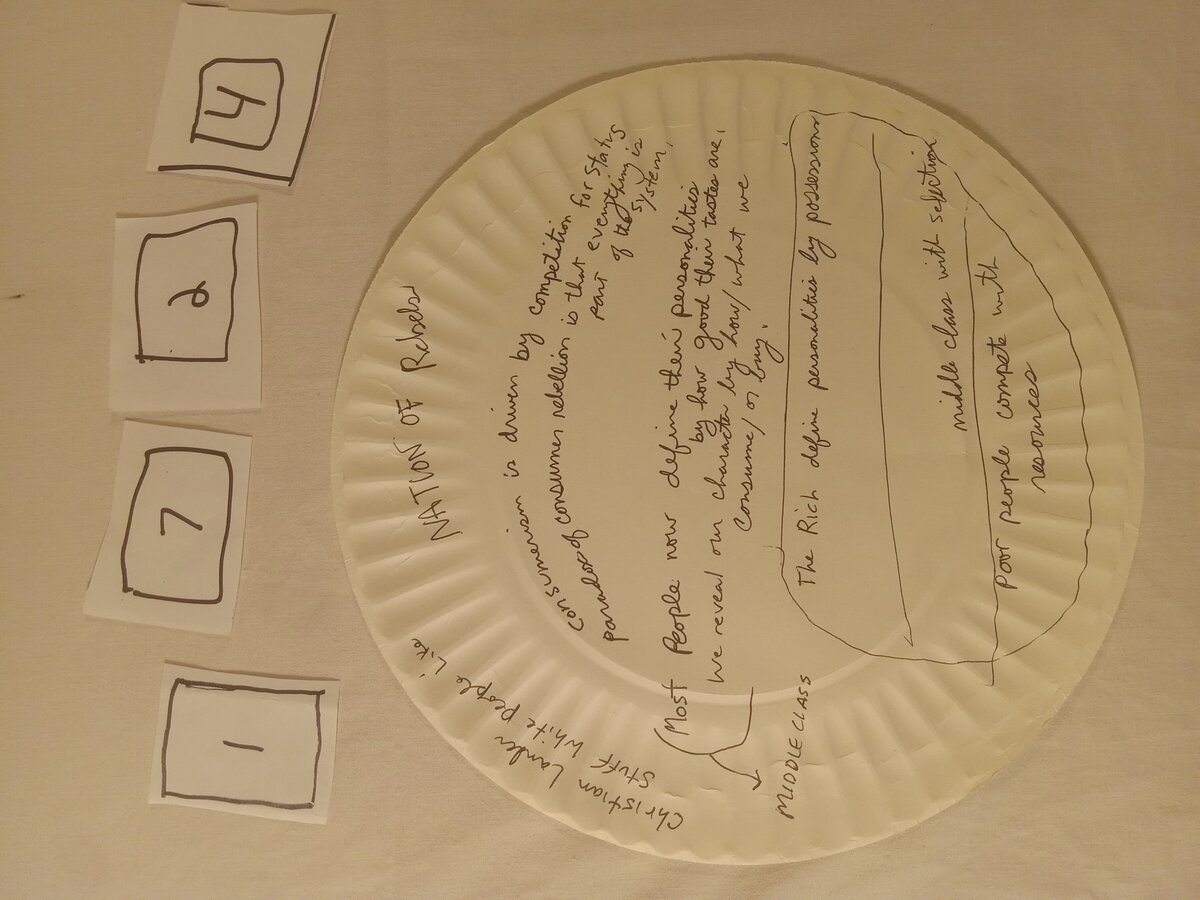 1 7 2 4
NATION OF Rebels
Christian Lander
Stuff White people Like
Consumerism is driven by competition for status
paradox of consumer rebellion is that everything is
part of the system.
Most People now define their personalities
by how good their tastes are.
We reveal our character by how/what we
consume/or buy.
MIDDLE CLASS
The Rich define personalities by possessions
middle class with selection
poor people compete with
resources